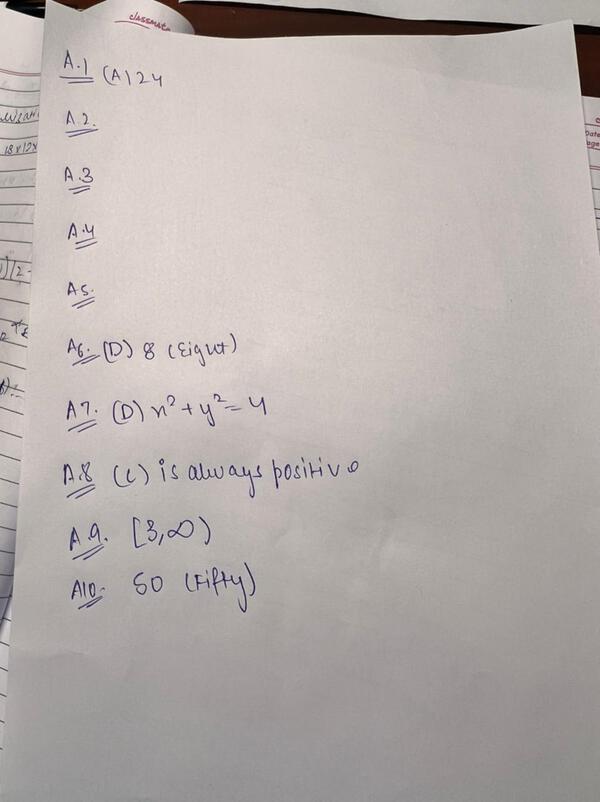 classmate
A.1 (A) 24
A.2.
A.3
A.4
A5.
A6. (D) 8 (Eight)
A7. (D) x² + y² = 4
A.8 (C) is always positive
A.9. [3,∞)
A10. 50 (Fifty)
Date
age
18x12x